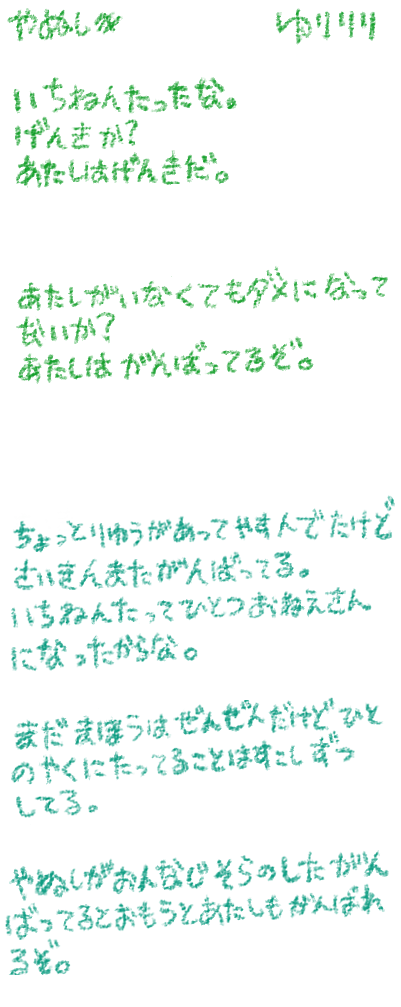 やぬしへ
ゆりりり
いちねんたったな。
げんきか?
あたしはげんきだ。
あたしがいなくてもダメになって
ないか?
あたしは がんばってるぞ。
ちょっとりゆうがあってやすんでたけど
さいきんまたがんばってる。
いちねんたってひとつおねえさん
になったからな。
まだまほうはぜんぜんだけどひと
のやくにたってることはすこしずつ
してる。
やぬしがおんなじそらのしたがん
ばってるとおもうとあたしもがんばれ
るぞ。